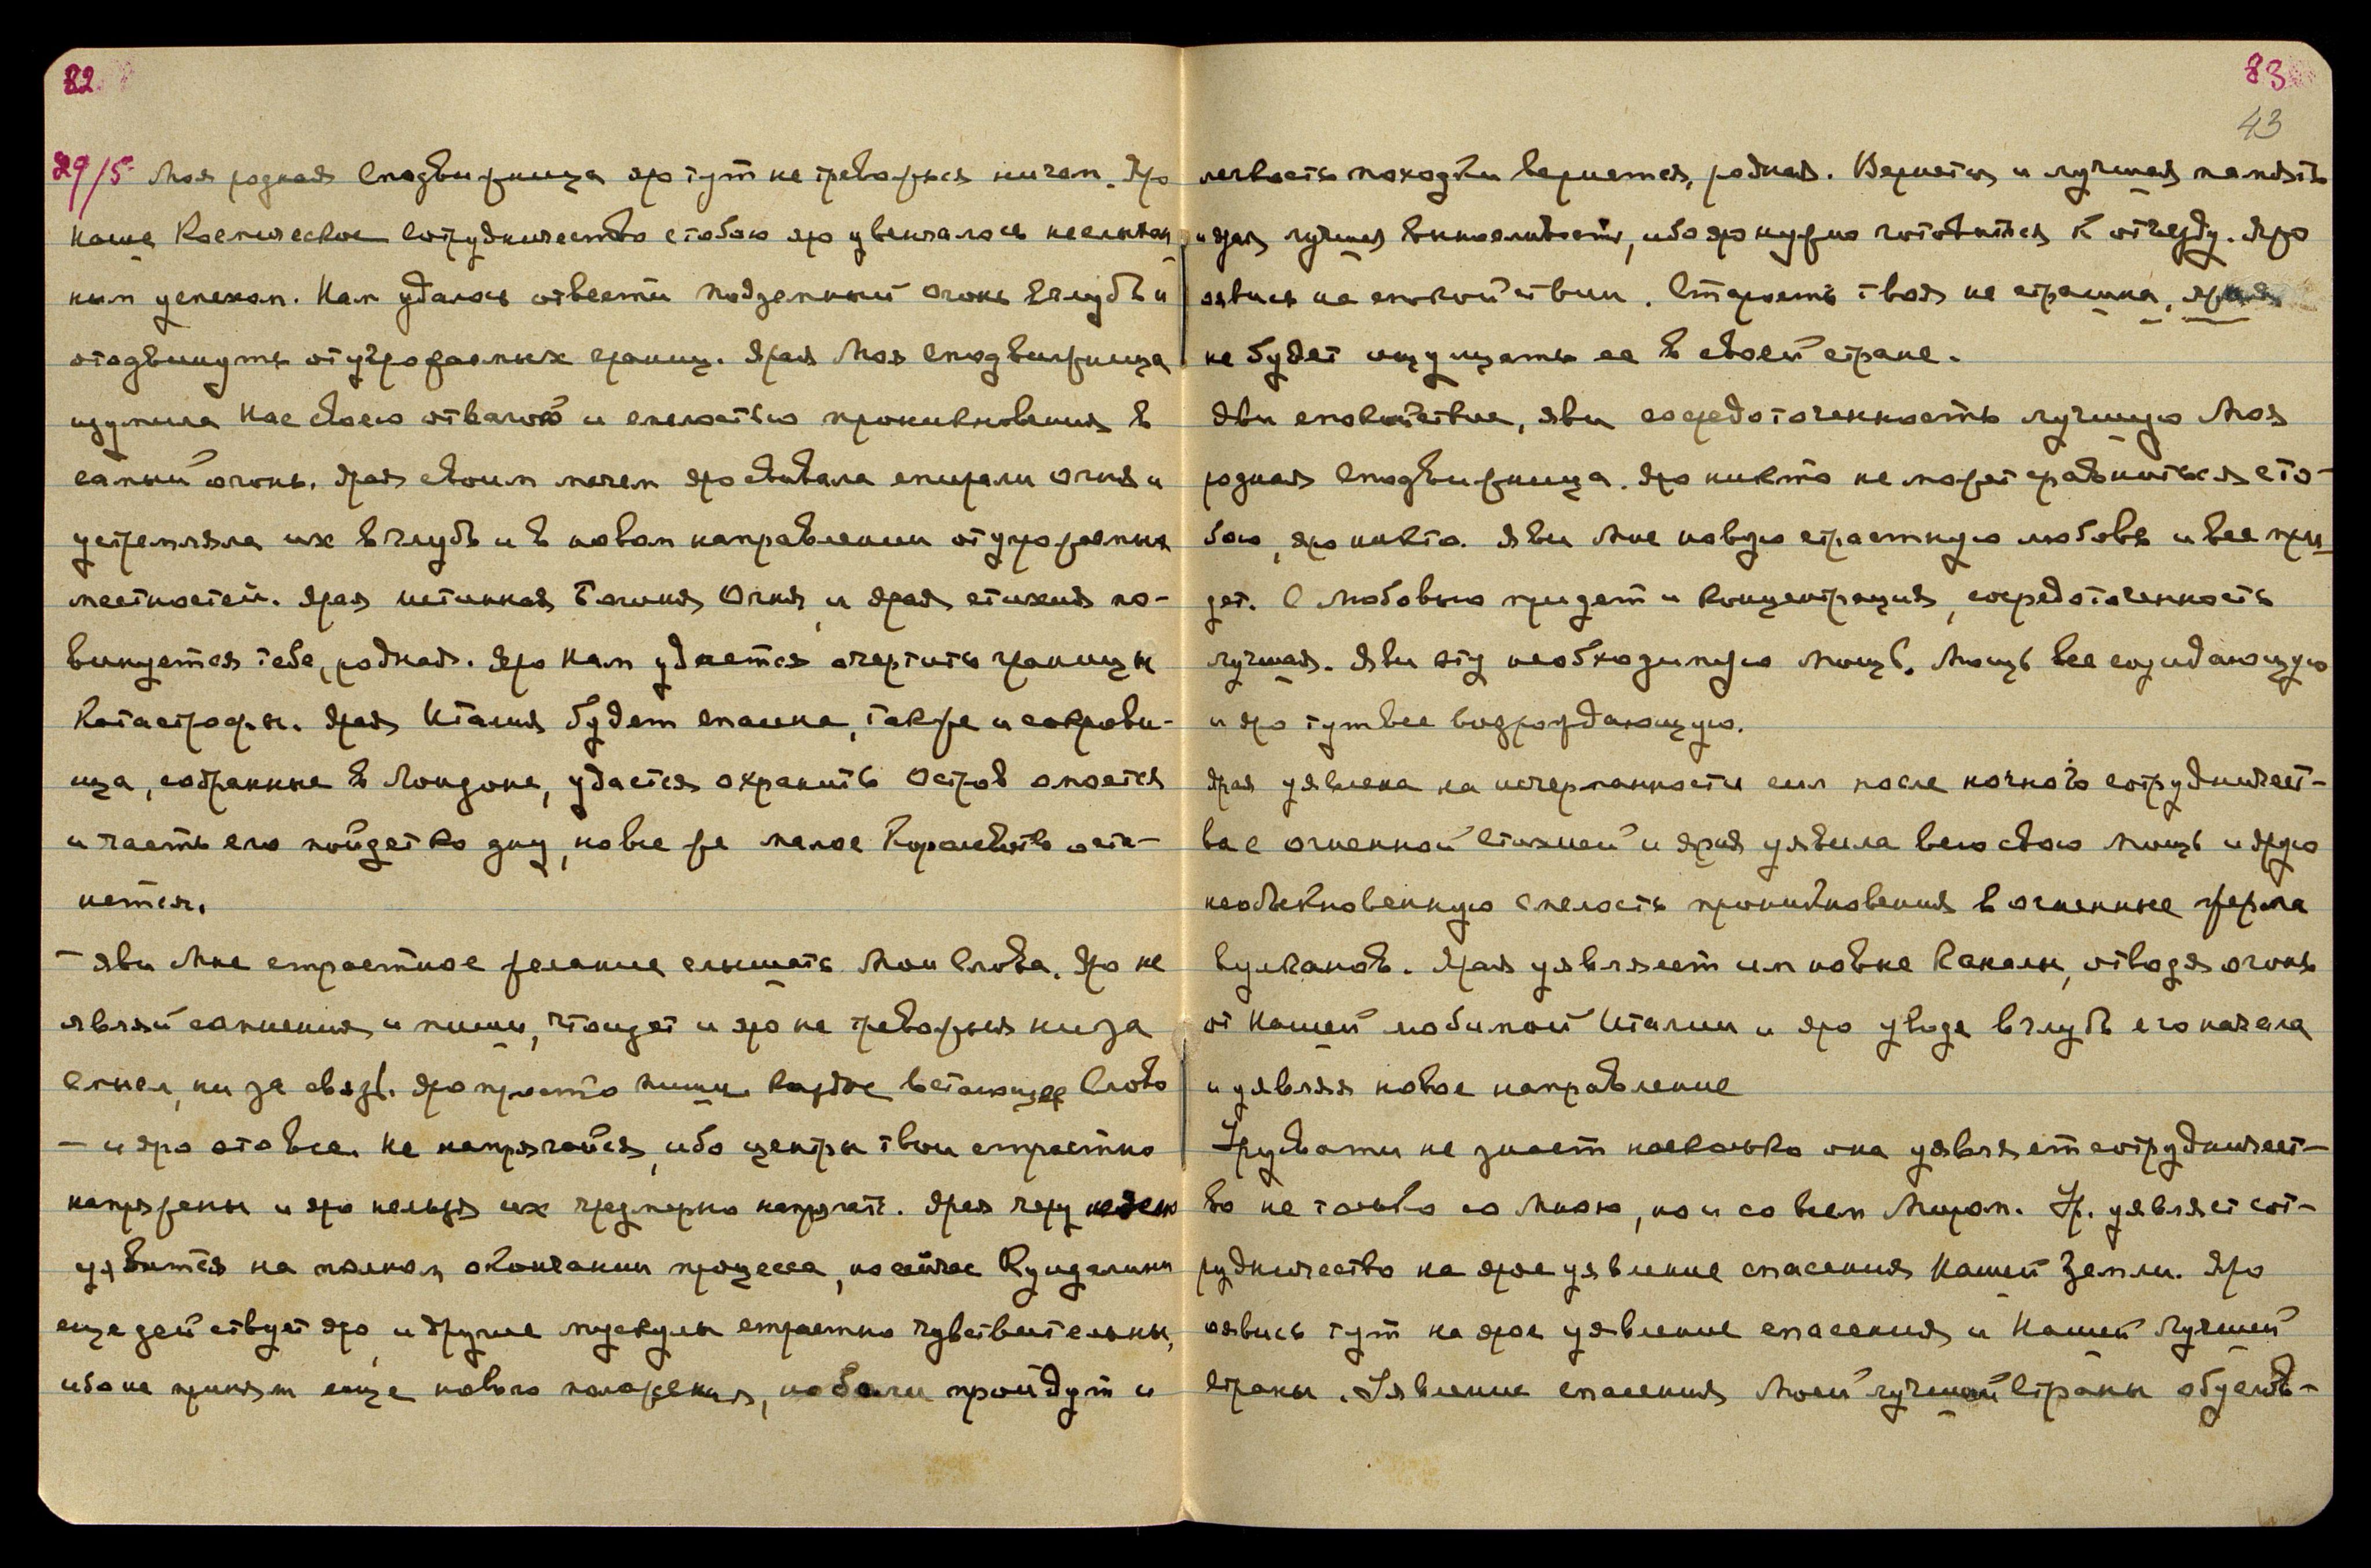 82
29/5 Моя родная Сподвижница яро тут не тревожься ничем. Яро
Наше Космическое Сотрудничество с тобою яро увенчалось неслыхан
ным успехом. Нам удалось отвести подземный огонь вглубь и
отодвинуть от угрожаемых границ. Ярая Моя Сподвижница
изумила Нас своею отвагою и смелостью проникновения в
самый огонь. Ярая своим мечем яро свивала спирали огня и
устремляла их вглубь и в новом направлении от угрожаемых
местностей. Ярая истинная Богиня Огня, и ярая стихия по-
винуется тебе, родная. Яро Нам удается очертить границы
Катастрофы. Ярая Италия будет спасена, также и сокрови-
ща, собранные в Лондоне, удастся охранить Остров омоется
и часть его пойдет ко дну, но все же малое Королевство оста-
нется.
– Яви Мне страстное желание слышать Мои Слова. Яро не
являй сомнения и пиши, что идет и яро не тревожься ни за
смысл, ни за связь. Яро просто пиши каждое встающее Слово
– и яро это все. Не напрягайся, ибо центры твои страстно
напряжены и яро нельзя их чрезмерно напрягать. Ярая через неделю
уявится на полном окончании процесса, но сейчас Кундалини
еще действует яро, и другие мускулы страстно чувствительны,
ибо не принят еще нового положения, но боли пройдут и
83
43
легкость походки вернется, родная. Вернется и лучшая память
и ярая лучшая выносливость, ибо яро нужно готовиться к отъезду. Яро
оявись на спокойствии. Старость твоя не страшна, ярая
не будет ощущать ее в своей стране.
Яви спокойствие, яви сосредоточенность лучшую Моя
родная Сподвижница. Яро никто не может сравниться с то-
бою, яро никто. Яви Мне новую страстную любовь и все при
дет. С Любовью придет и Концентрация, сосредоточенность
лучшая. Яви эту необходимую Мощь. Мощь все созидающую
и яро тут все возрождающую.
Ярая уявлена на исчерпанности сил после ночного сотрудничест-
ва с огненной Стихией и ярая уявила всю свою Мощь и ярую
необыкновенную смелость проникновения в огненные жерла
вулканов. Ярая уявляет им новые Каналы, отводя огонь
от Нашей любимой Италии и яро уводя вглубь его начала
и уявляя новое направление
Урусвати не знает насколько она уявляет сотрудничест-
во не только со Мною, но и со всем Миром. Ур. уявляет сот-
рудничество на ярое уявление спасения Нашей Земли. Яро
оявись тут на ярое уявление спасения и Нашей Лучшей
Страны. Уявление спасения Моей лучшей Страны обуслов-